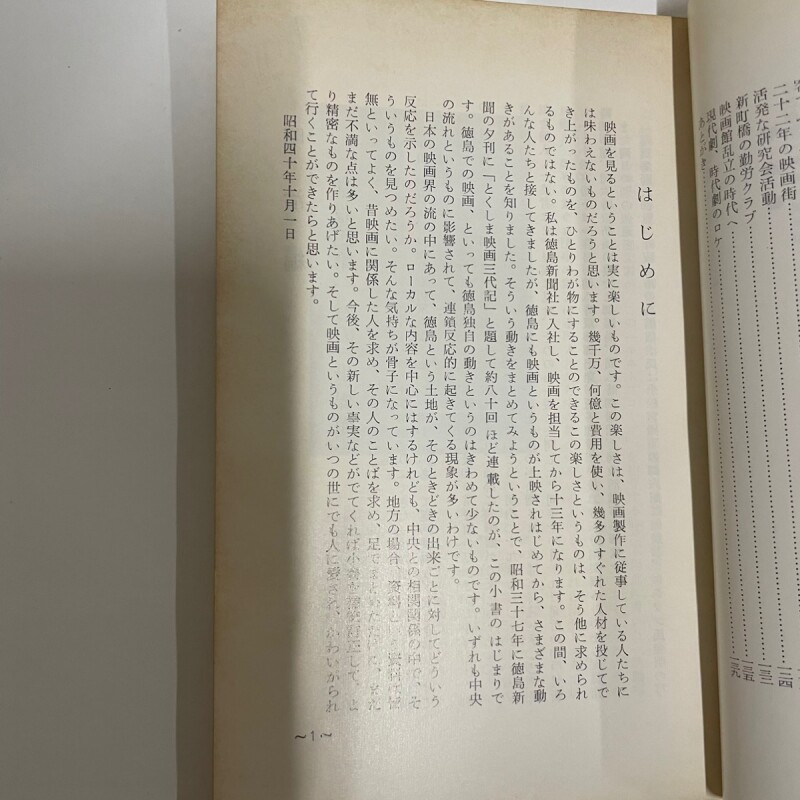 二十二年の映画街
活発な研究会活動
新町橋の勤労クラブ
映画館乱立の時代へ
現代劇、時代劇のロケ
あとがき
はじめに
映画を見るということは実に楽しいものです。この楽しさは、映画製作に従事している人たちに
は味わえないものだろうと思います。幾千万、何億と費用を使い、幾多のすぐれた人材を投じてで
き上がったものを、ひとりわが物にすることのできるこの楽しさというものは、そう他に求められ
るものではない。私は徳島新聞社に入社し、映画を担当してから十三年になります。この間、いろ
んな人たちと接してきましたが、徳島にも映画というものが上映されはじめてから、さまざまな動
きがあることを知りました。そういう動きをまとめてみようということで、昭和三十七年に徳島新
聞の夕刊に「とくしま映画三代記」と題して約八十回ほど連載したのが、この小書のはじまりで
す。徳島での映画、といっても徳島独自の動きというのはきわめて少ないものです。いずれも中央
の流れというものに影響されて、連鎖反応的に起きてくる現象が多いわけです。
日本の映画界の流の中にあって、徳島という土地が、そのときどきの出来ごとに対してどういう
反応を示したのだろうか。ローカルな内容を中心にはするけれども、中央との相関関係の中で、そ
ういうものを見つめたい。そんな気持ちが骨子になっています。地方の場合、資料という資料は皆
無といってよく、昔映画に関係した人を求め、その人のことばを求め、足でまとめただけに、
まだ不満な点は多いと思います。今後、その新しい事実などがでてくれば して、よ
り精密なものを作りあげたい。そして映画というものがいつの世にでも人に愛され、かわいがられ
て行くことができたらと思います。
昭和四十年十月一日
～1～